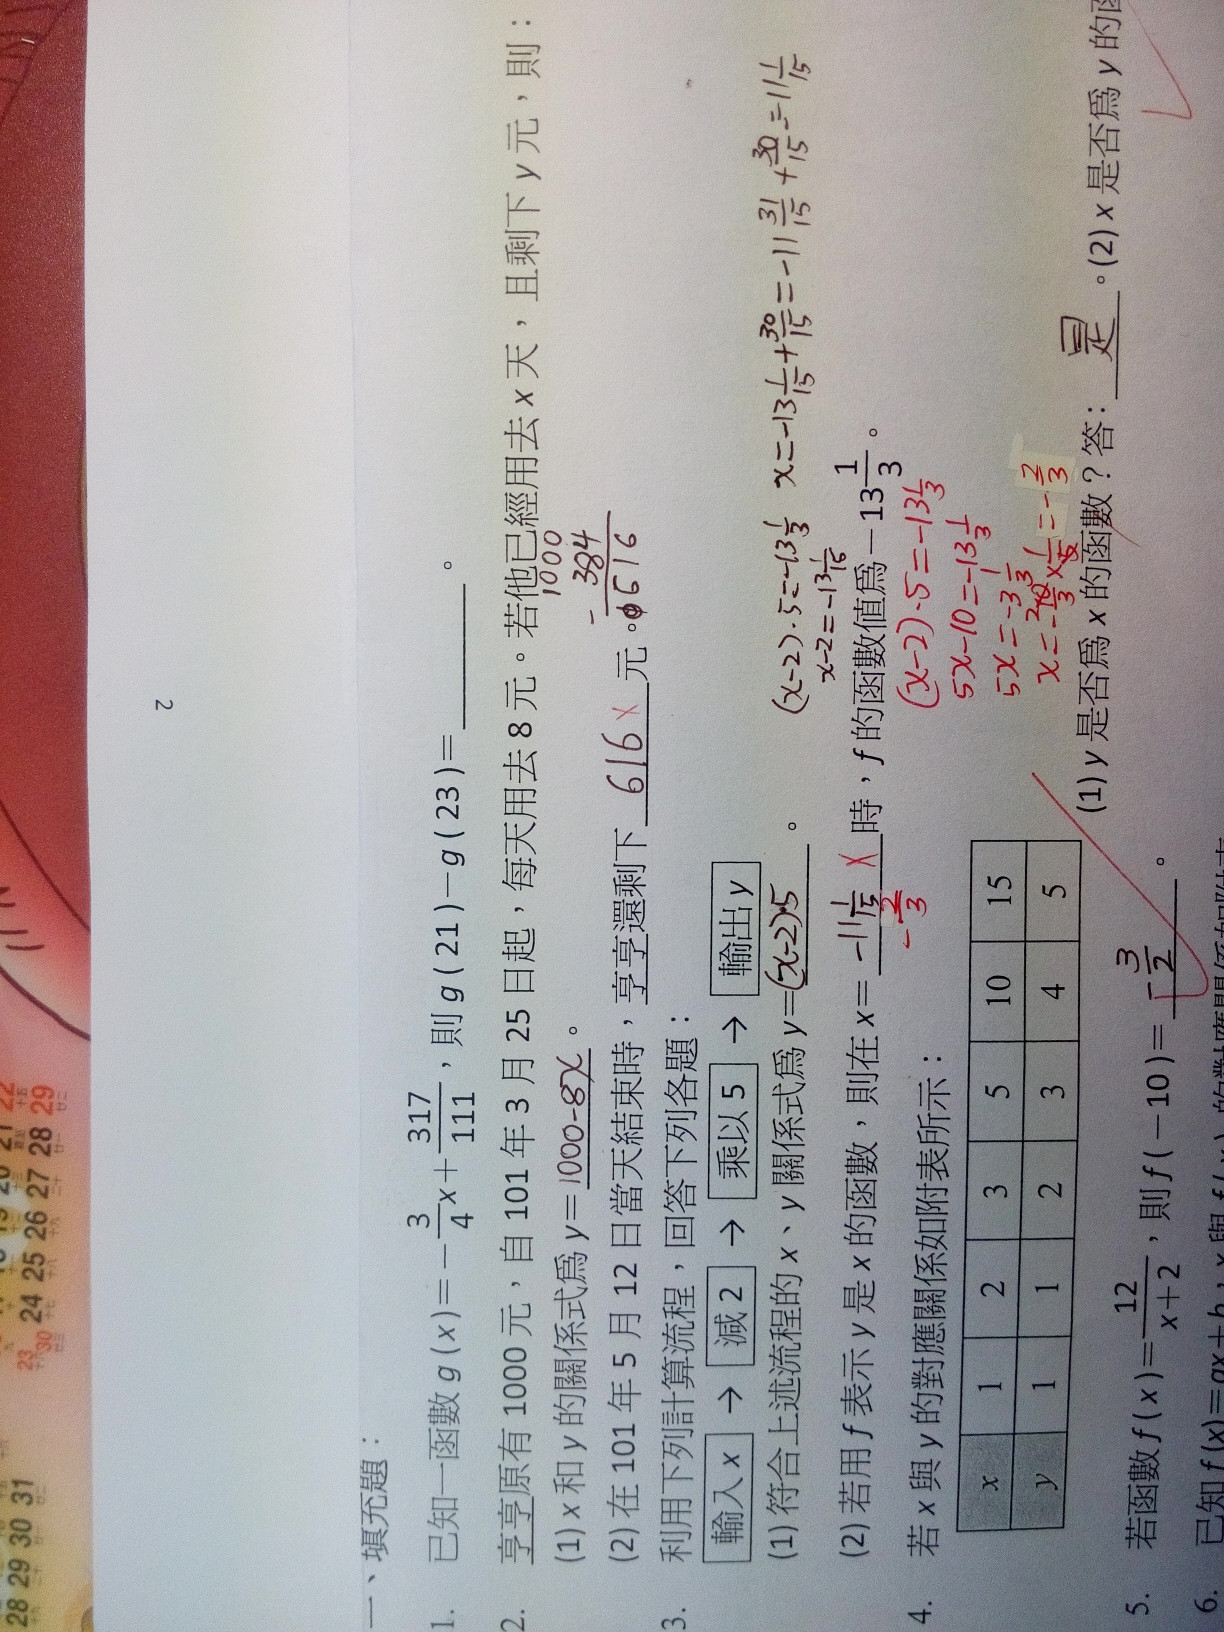 2
一、填充題：
1. 已知一函數 g ( x )＝－3/4 x＋317/111，則 g ( 21 )－g ( 23 )＝________。
2. 亨亨原有 1000 元，自 101 年 3 月 25 日起，每天用去 8 元。若他已經用去 x 天，且剩下 y 元，則：
(1) x 和 y 的關係式為 y＝1000-8x。
(2) 在 101 年 5 月 12 日當天結束時，亨亨還剩下 616 x 元。
1000
- 384
0616
3. 利用下列計算流程，回答下列各題：
輸入 x → 減 2 → 乘以 5 → 輸出 y
(1) 符合上述流程的 x、y 關係式為 y＝(x-2)·5。
(x-2)·5=-13 1/3
x-2=-13 1/15
x=-13 1/15+30/15=-11 31/15+30/15=-11 1/15
(2) 若用 f 表示 y 是 x 的函數，則在 x＝-11 1/15 x 時，f 的函數值為－13 1/3。
-2/3
(x-2)·5=-13 1/3
5x-10=-13 1/3
5x=-3 1/3
4. 若 x 與 y 的對應關係如附表所示：
x 1 2 3 5 10 15
y 1 1 2 3 4 5
(1) y 是否為 x 的函數？答：是。(2) x 是否為 y 的
5. 若函數 f ( x )＝12/x＋2，則 f (－10 )＝-3/2。
6. 已知 f (x)＝ax＋b，x 與 f (x) 的對應關係如附表
28 29 30 31
23 24 25 26 27 28 29
30
20 21 22